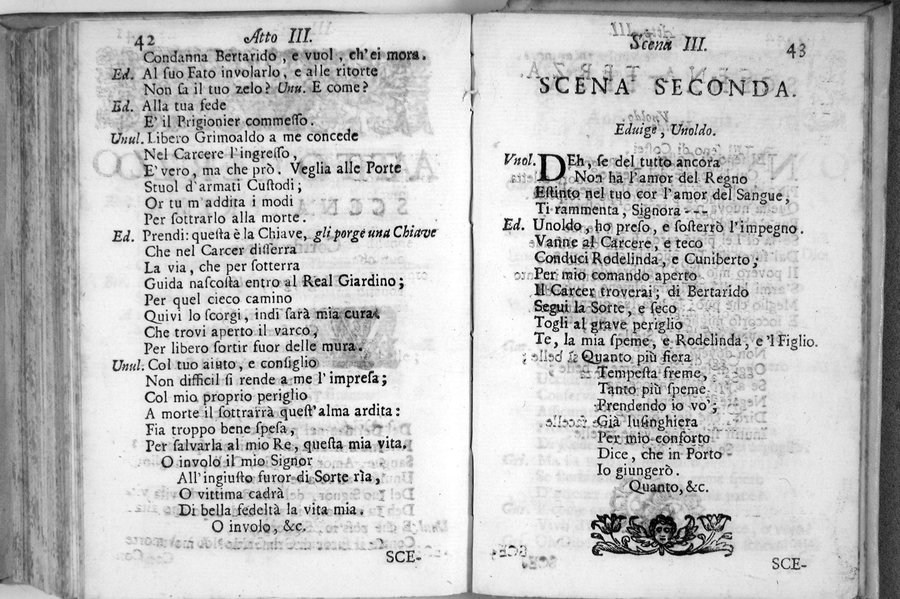 42 Atto III.
Condanna Bertarido, e vuol, ch'ei mora.
Ed. Al ſuo Fato involarlo, e alle ritorte
Non ſa il tuo zelo? Unu. E come?
Ed. Alla tua fede
E' il Prigionier commeſſo.
Unul. Libero Grimoaldo a me concede
Nel Carcere l'ingreſſo,
E' vero, ma che prò. Veglia alle Porte
Stuol d'armati Cuſtodi;
Or tu m'addita i modi
Per ſottrarlo alla morte.
Ed. Prendi: queſta è la Chiave, gli porge una Chiave
Che nel Carcer diſſerra
La via, che per ſotterra
Guida naſcoſta entro al Real Giardino;
Per quel cieco camino
Quivi lo ſcorgi, indi ſarà mia cura
Che trovi aperto il varco,
Per libero ſortir fuor delle mura.
Unul. Col tuo aiuto, e conſiglio
Non difficil ſi rende a me l'impreſa;
Col mio proprio periglio
A morte il ſottrarrà queſt'alma ardita:
Fia troppo bene ſpeſa,
Per ſalvarla al mio Re, queſta mia vita.
O involo il mio Signor
All'ingiuſto furor di Sorte rìa,
O vittima cadrà
Di bella fedeltà la vita mia.
O involo, &c.
SCE-
Scena III. 43
SCENA SECONDA.
Eduige, Unoldo.
Vnol. DEh, ſe del tutto ancora
Non ha l'amor del Regno
Eſtinto nel tuo cor l'amor del Sangue,
Ti rammenta, Signora ---
Ed. Unoldo, ho preſo, e ſoſterrò l'impegno.
Vanne al Carcere, e teco
Conduci Rodelinda, e Cuniberto;
Per mio comando aperto
Il Carcer troverai; di Bertarido
Segui la Sorte, e ſeco
Togli al grave periglio
Te, la mia ſpeme, e Rodelinda, e 'l Figlio.
Quanto più fiera
Tempeſta freme,
Tanto più ſpeme
Prendendo io vo';
Già luſinghiera
Per mio conforto
Dice, che in Porto
Io giungerò.
Quanto, &c.
SCE-